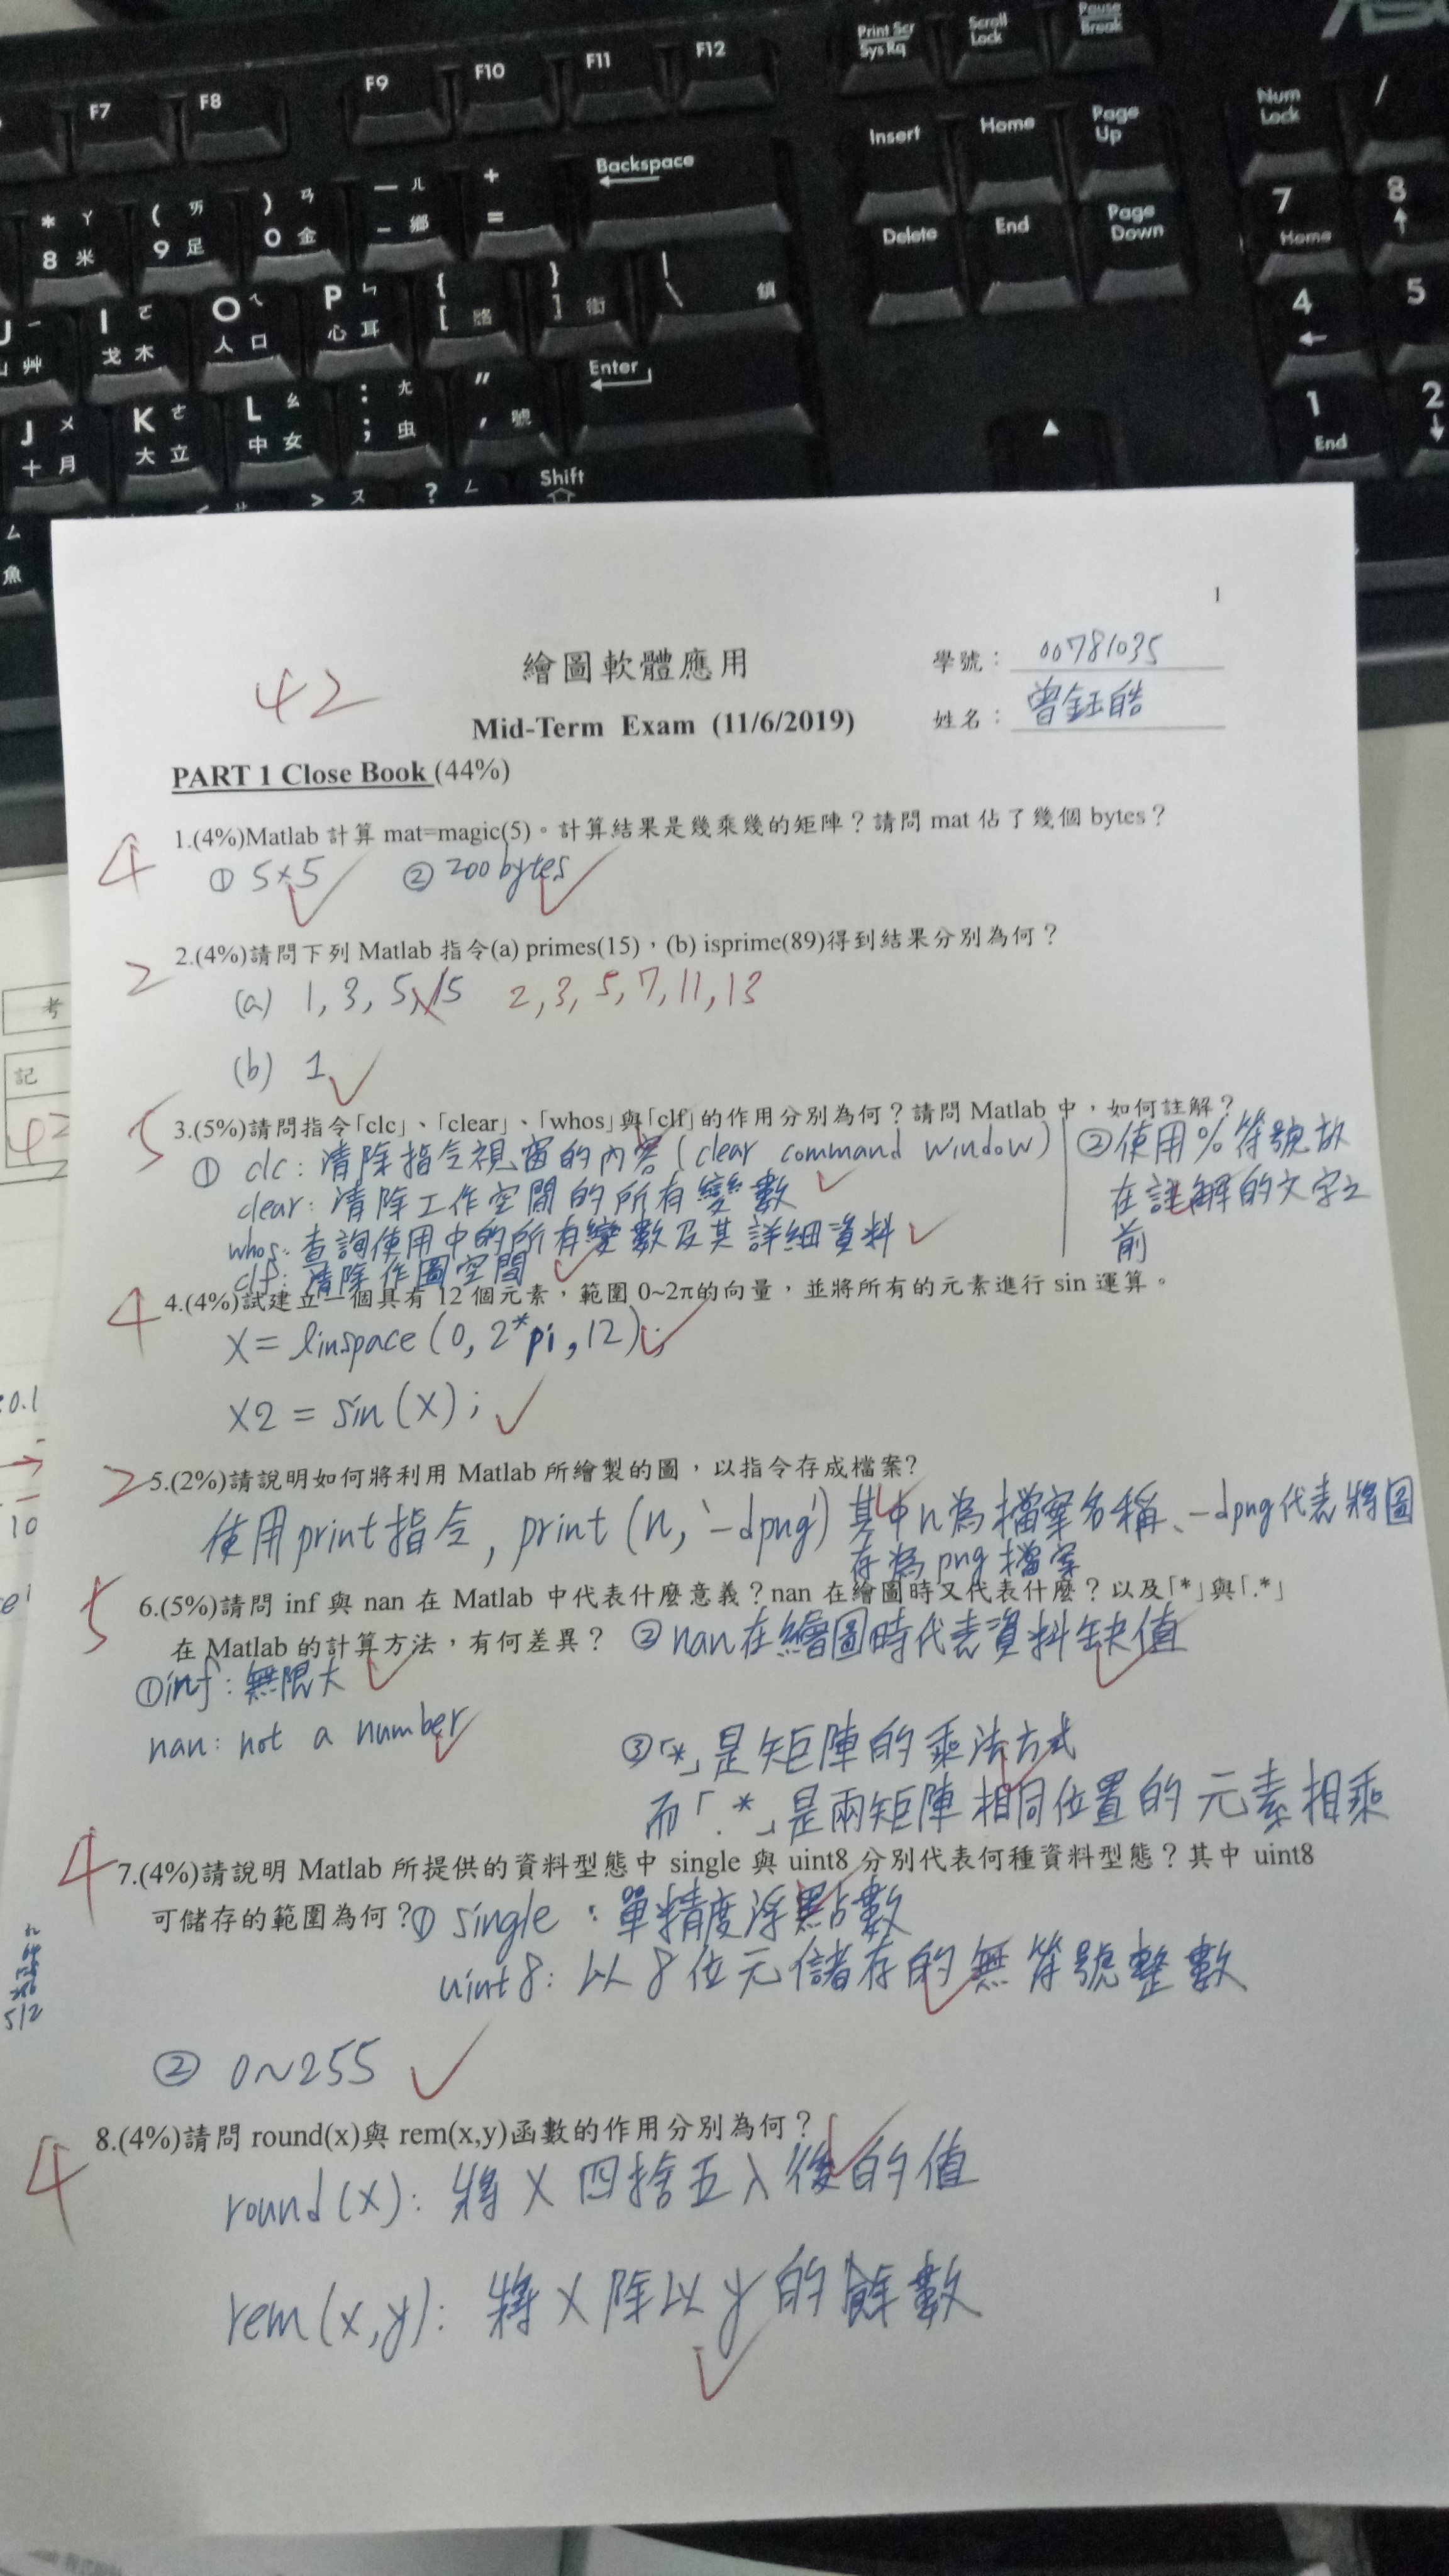 F7 F8 F9 F10 F11 F12 Print Scr Sys Rq Scroll Lock Pause Break
Insert Home Page Up Num Lock /
* ㄚ 8 米 ( ㄞ 9 足 ) ㄢ 0 金 — ㄦ - 鄉 + = Backspace
Delete End Page Down 7 Home 8
I ㄛ 戈 木 O ㄟ 人 口 P ㄣ 心 耳 { [ } ] | \
4 5
J ㄨ 十 月 K ㄜ 大 立 L ㄠ 中 女 : ㄤ ; 虫 " , 號 Enter
1 End 2
> ㄡ ? ㄥ Shift
ㄙ 魚
1
繪圖軟體應用
學號: 00781035
42
Mid-Term Exam (11/6/2019)
姓名: 曾鈺皓
PART 1 Close Book (44%)
4 1.(4%)Matlab 計算 mat=magic(5)。計算結果是幾乘幾的矩陣?請問 mat 佔了幾個 bytes?
① 5×5 ② 200 bytes
2 2.(4%)請問下列 Matlab 指令(a) primes(15),(b) isprime(89)得到結果分別為何?
(a) 1, 3, 5, 15 2, 3, 5, 7, 11, 13
(b) 1
5 3.(5%)請問指令「clc」、「clear」、「whos」與「clf」的作用分別為何?請問 Matlab 中,如何註解?
① clc: 清除指令視窗的內容 (clear command window)
clear: 清除工作空間的所有變數
whos: 查詢使用中的所有變數及其詳細資料
clf: 清除作圖空間
② 使用 % 符號放
在註解的文字之
前
4 4.(4%)試建立一個具有 12 個元素,範圍 0~2π的向量,並將所有的元素進行 sin 運算。
X = linspace (0, 2*pi, 12);
X2 = sin(X);
2 5.(2%)請說明如何將利用 Matlab 所繪製的圖,以指令存成檔案?
使用print指令, print (n, '-dpng') 其中n為檔案名稱、-dpng代表將圖
存為 png 檔案
5 6.(5%)請問 inf 與 nan 在 Matlab 中代表什麼意義?nan 在繪圖時又代表什麼?以及「*」與「.*」
在 Matlab 的計算方法,有何差異?
② nan在繪圖時代表資料缺值
① inf: 無限大
nan: not a number
③「*」是矩陣的乘法方式
而「.*」是兩矩陣相同位置的元素相乘
4 7.(4%)請說明 Matlab 所提供的資料型態中 single 與 uint8 分別代表何種資料型態?其中 uint8
可儲存的範圍為何?
① single: 單精度浮點數
uint8: 以 8 位元儲存的無符號整數
② 0~255
4 8.(4%)請問 round(x)與 rem(x,y)函數的作用分別為何?
round(x): 將 x 四捨五入後的值
rem(x,y): 將 x 除以 y 的餘數
考
記
0.1
10
512